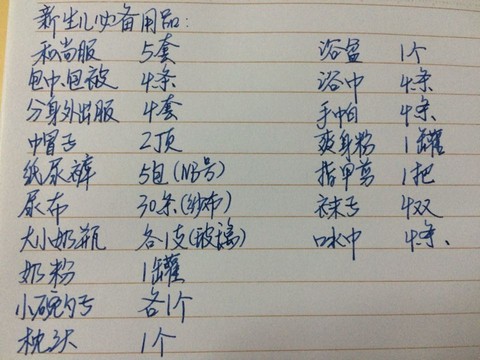 新生儿必备用品:
和尚服 5套 浴盆 1个
包巾、包被 4条 浴巾 4条
分身外出服 4套 手帕 4条
帽子 2顶 爽身粉 1罐
纸尿裤 5包(NB号) 指甲剪 1把
尿布 30条(纱布) 袜子 4双
大小奶瓶 各1支(玻璃) 口水巾 4条、
奶粉 1罐
小碗勺子 各1个
枕头 1个